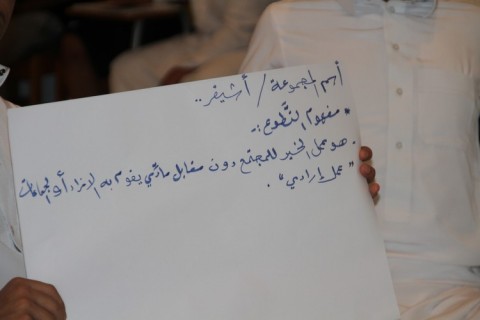 أسم المجموعة / أشيفر..
* مفهوم التَّطوع :-
. هو عمل الخير للمجتمع دون مقابل مادي يقوم به الافراد أو الجماعات
"عمل إرادي" .